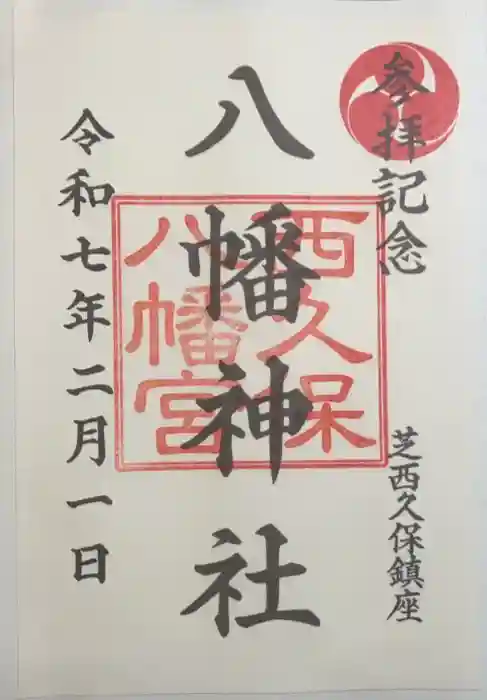 参拝記念
芝西久保鎮座
八幡神社
西久保
八幡宮
令和七年二月一日